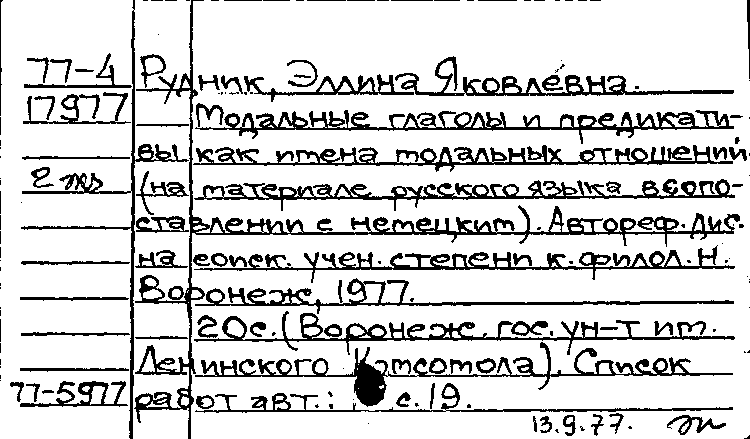 77-4 Рудник, Эллина Яковлевна.
17977 Модальные глаголы и предикати-
вы как имена модальных отношений
2 экз (на материале русского языка в сопо-
ставлении с немецким). Автореф. дис.
на соиск. учен. степени к. филол. н.
Воронеж, 1977.
20с. (Воронеж. гос. ун-т им.
Ленинского Комсомола). Список
77-5977 работ авт.: с. 19.
13.9.77.